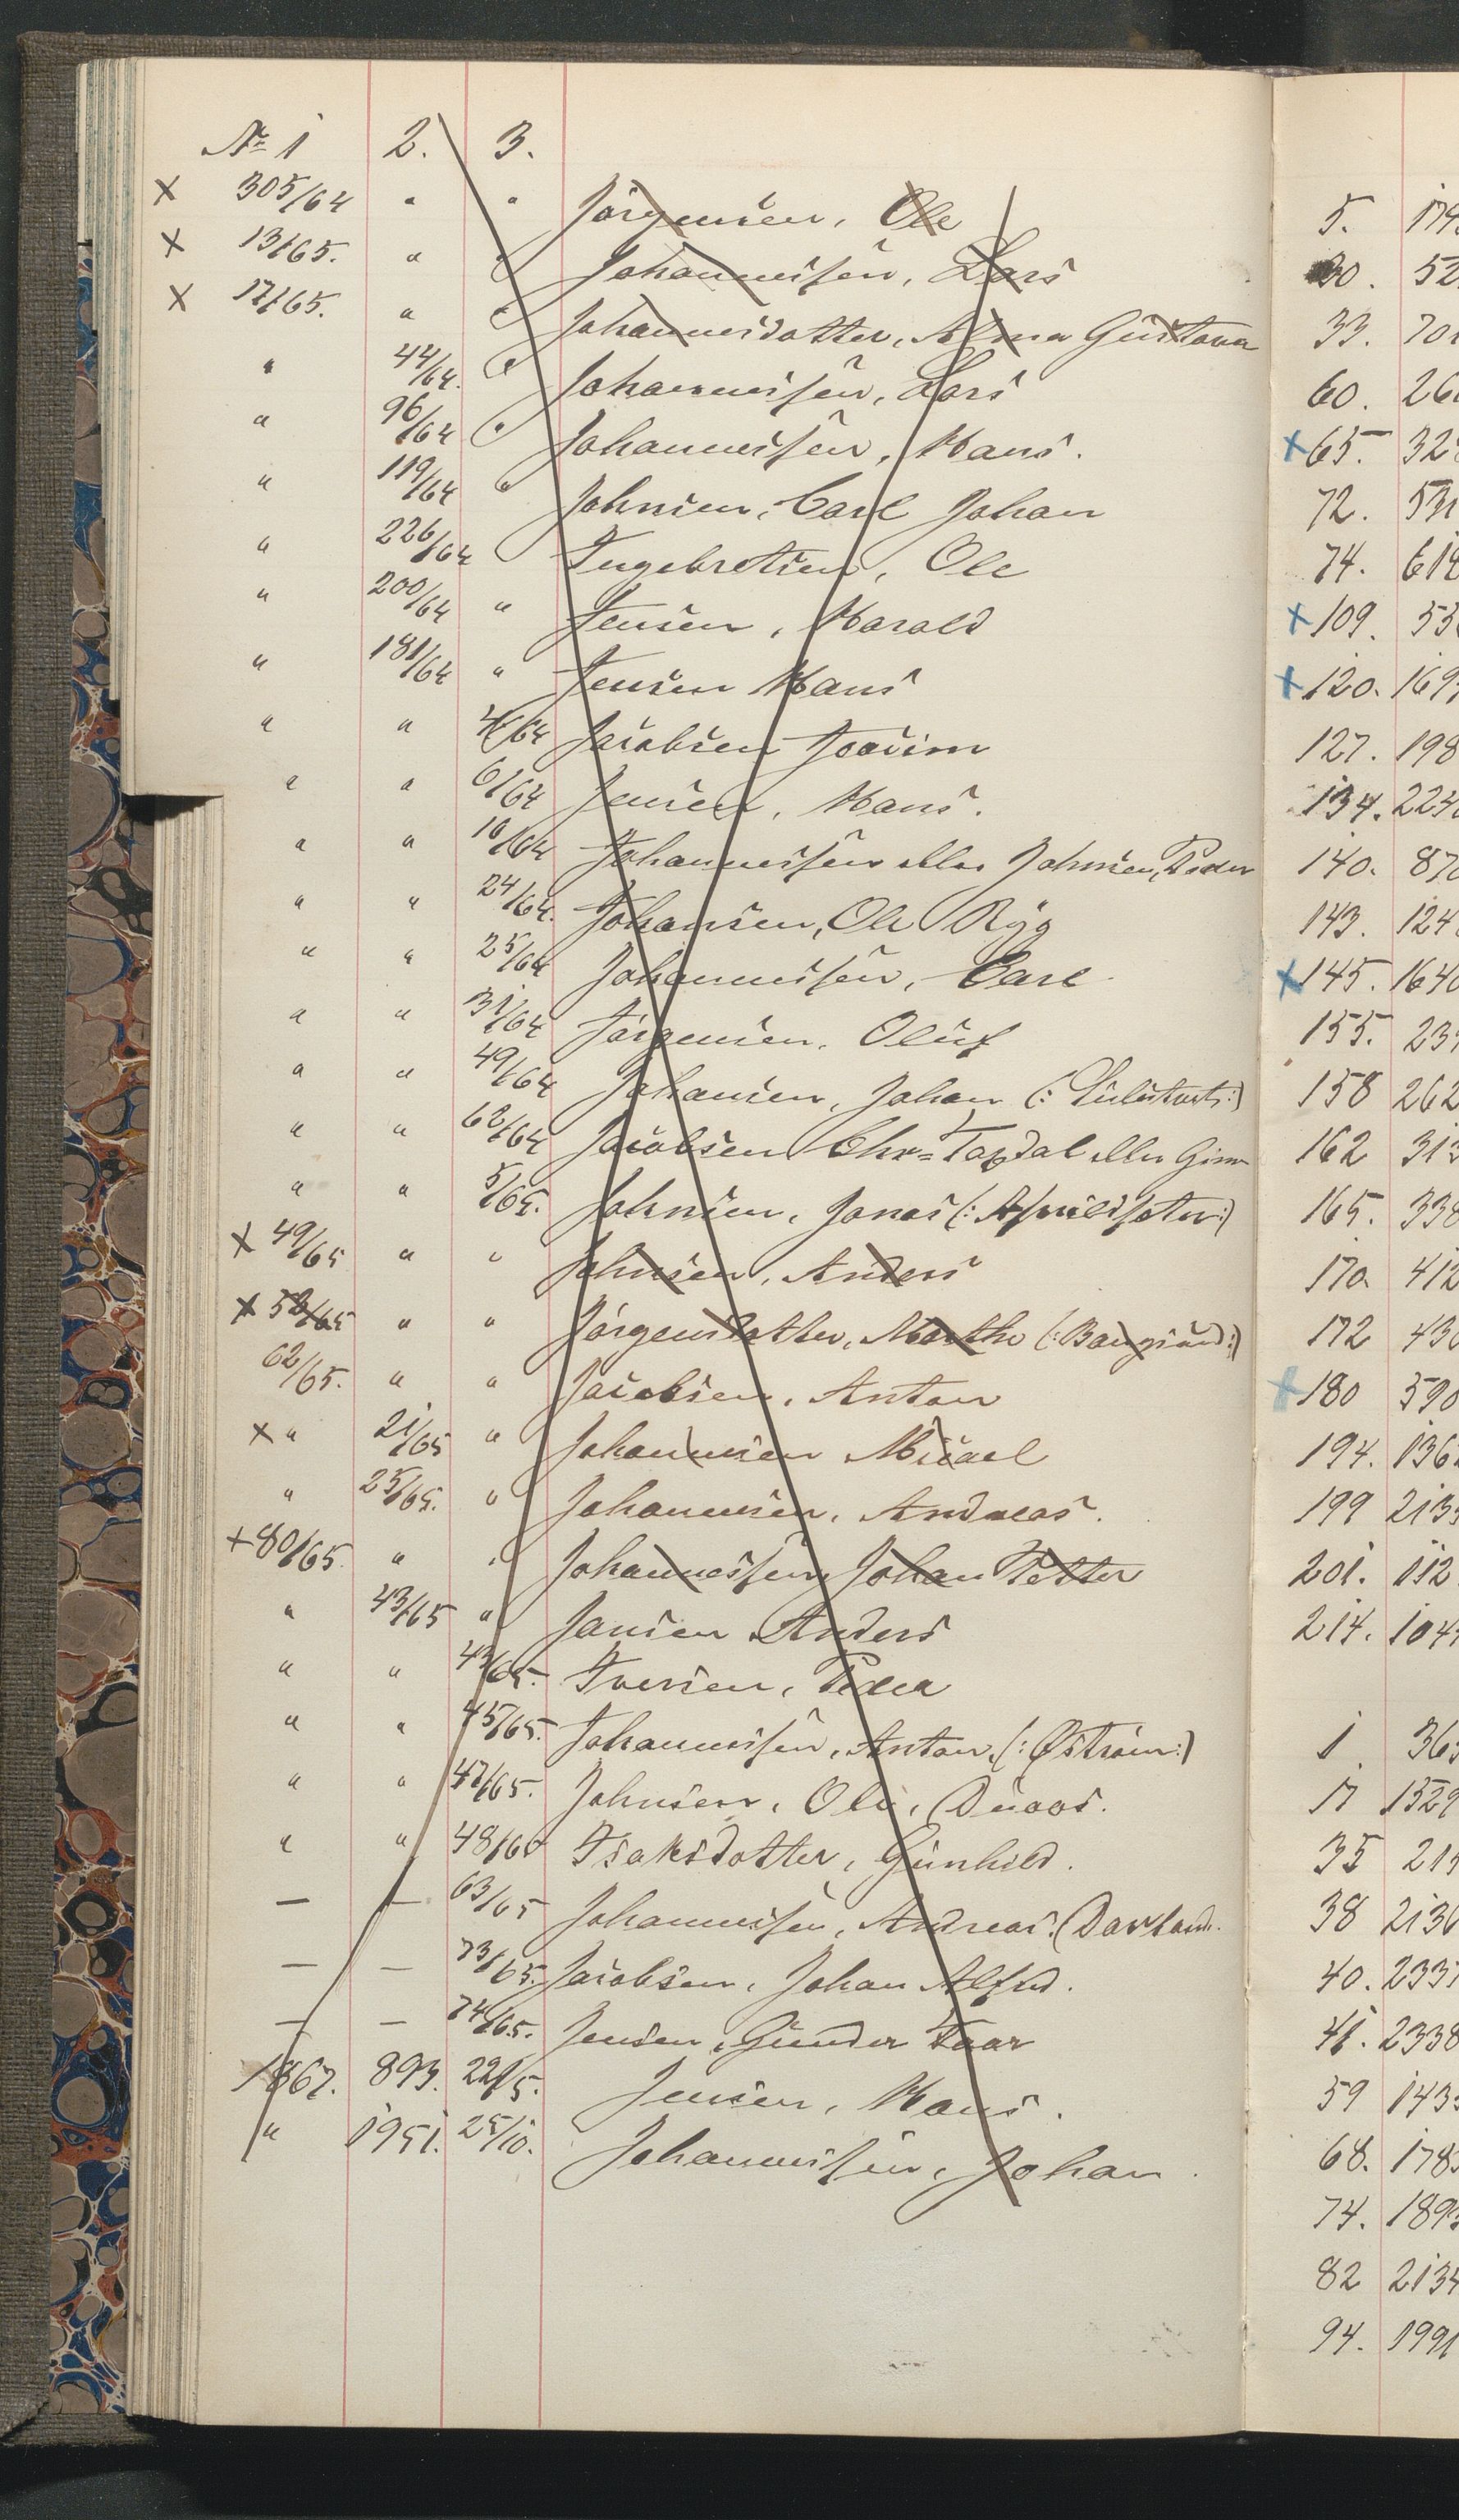 № 1 2. 3.
× 305/64 " " Jörgensen, Ole
× 13/65. " " Johannessen, Lars
× 17/65. " " Johannesdatter, Alma Gustava
" 44/64. " Johannessen, Lars
" 96/64 " Johannessen, Hans.
" 119/64 " Johnsen, Carl Johan
" 226/64 Ingebretsen, Ole
" 200/64 " Jensen, Harald
" 181/64 " Jensen Hans
" " /64 Jacobsen Joacim
" " 6/64 Jensen, Hans.
" " 10/64 Johannessen eller Johnsen, Peder
" " 24/64. Johansen, Ole Ryg
" " 25/64 Johannessen, Carl
" " 31/64 Jörgensen, Oluf
" " 49/64 Johansen, Johan
" " 62/64 Jacobsen Chr= eller
" " 5/65. Johnsen, Jonas
× 49/65 " " Johnsen, Anders
× 58/65 " " Jörgensdatter, Marthe
62/65. " " Jacobsen, Anton
× " 21/65 " Johannesen Micael
" 25/65. " Johannesen, Andreas.
+ 80/65 " " Johannessen, Johan Petter
" 43/65 " Jansen Anders
" " 43/65. Iversen, Peder
" " 45/65. Johannessen, Anton (: Öström :)
" " 47/65. Johnsen, Ole,
" " 48/65 Isaksdatter, Gunhild.
— — 63/65 Johannessen, Andreas.
— — 73/65. Jacobsen, Johan Alfred.
— — 74/65. Jensen, Gunder
1867. 893. 22/5. Jensen, Hans.
" 1951. 25/10. Johannessen, Johan.
5.
30. 52
33.
60.
× 65. 32
72.
74.
× 109. 53
× 120. 169
127. 198
134. 223
140. 87
143. 124
× 145. 164
155. 23
158 262
162 313
165. 338
170. 412
172 43
× 180 590
194. 136
199 213
201. 112
214. 104
1 36
17 1529
35 21
38 213
40. 233
41. 2338
59 143
68. 178
74. 189
82 213
94. 1991